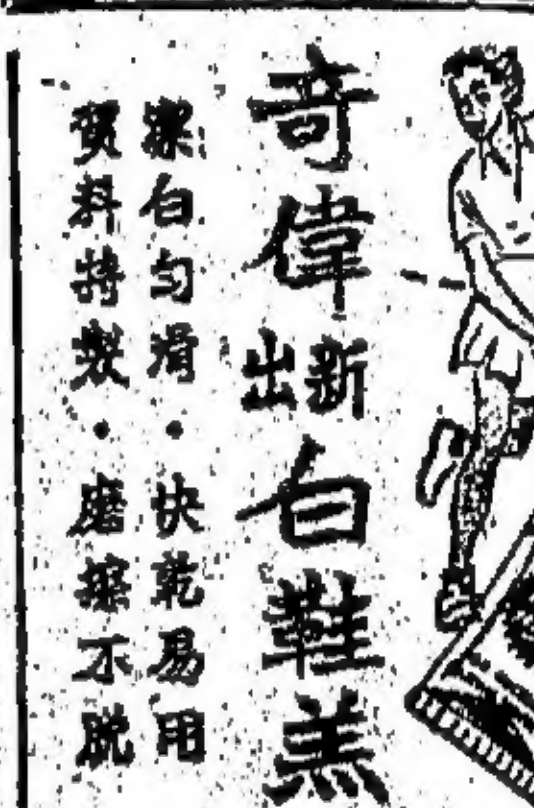 奇偉新出白鞋羔
潔白勻滑・快乾易用
質料特製・磨擦不脫